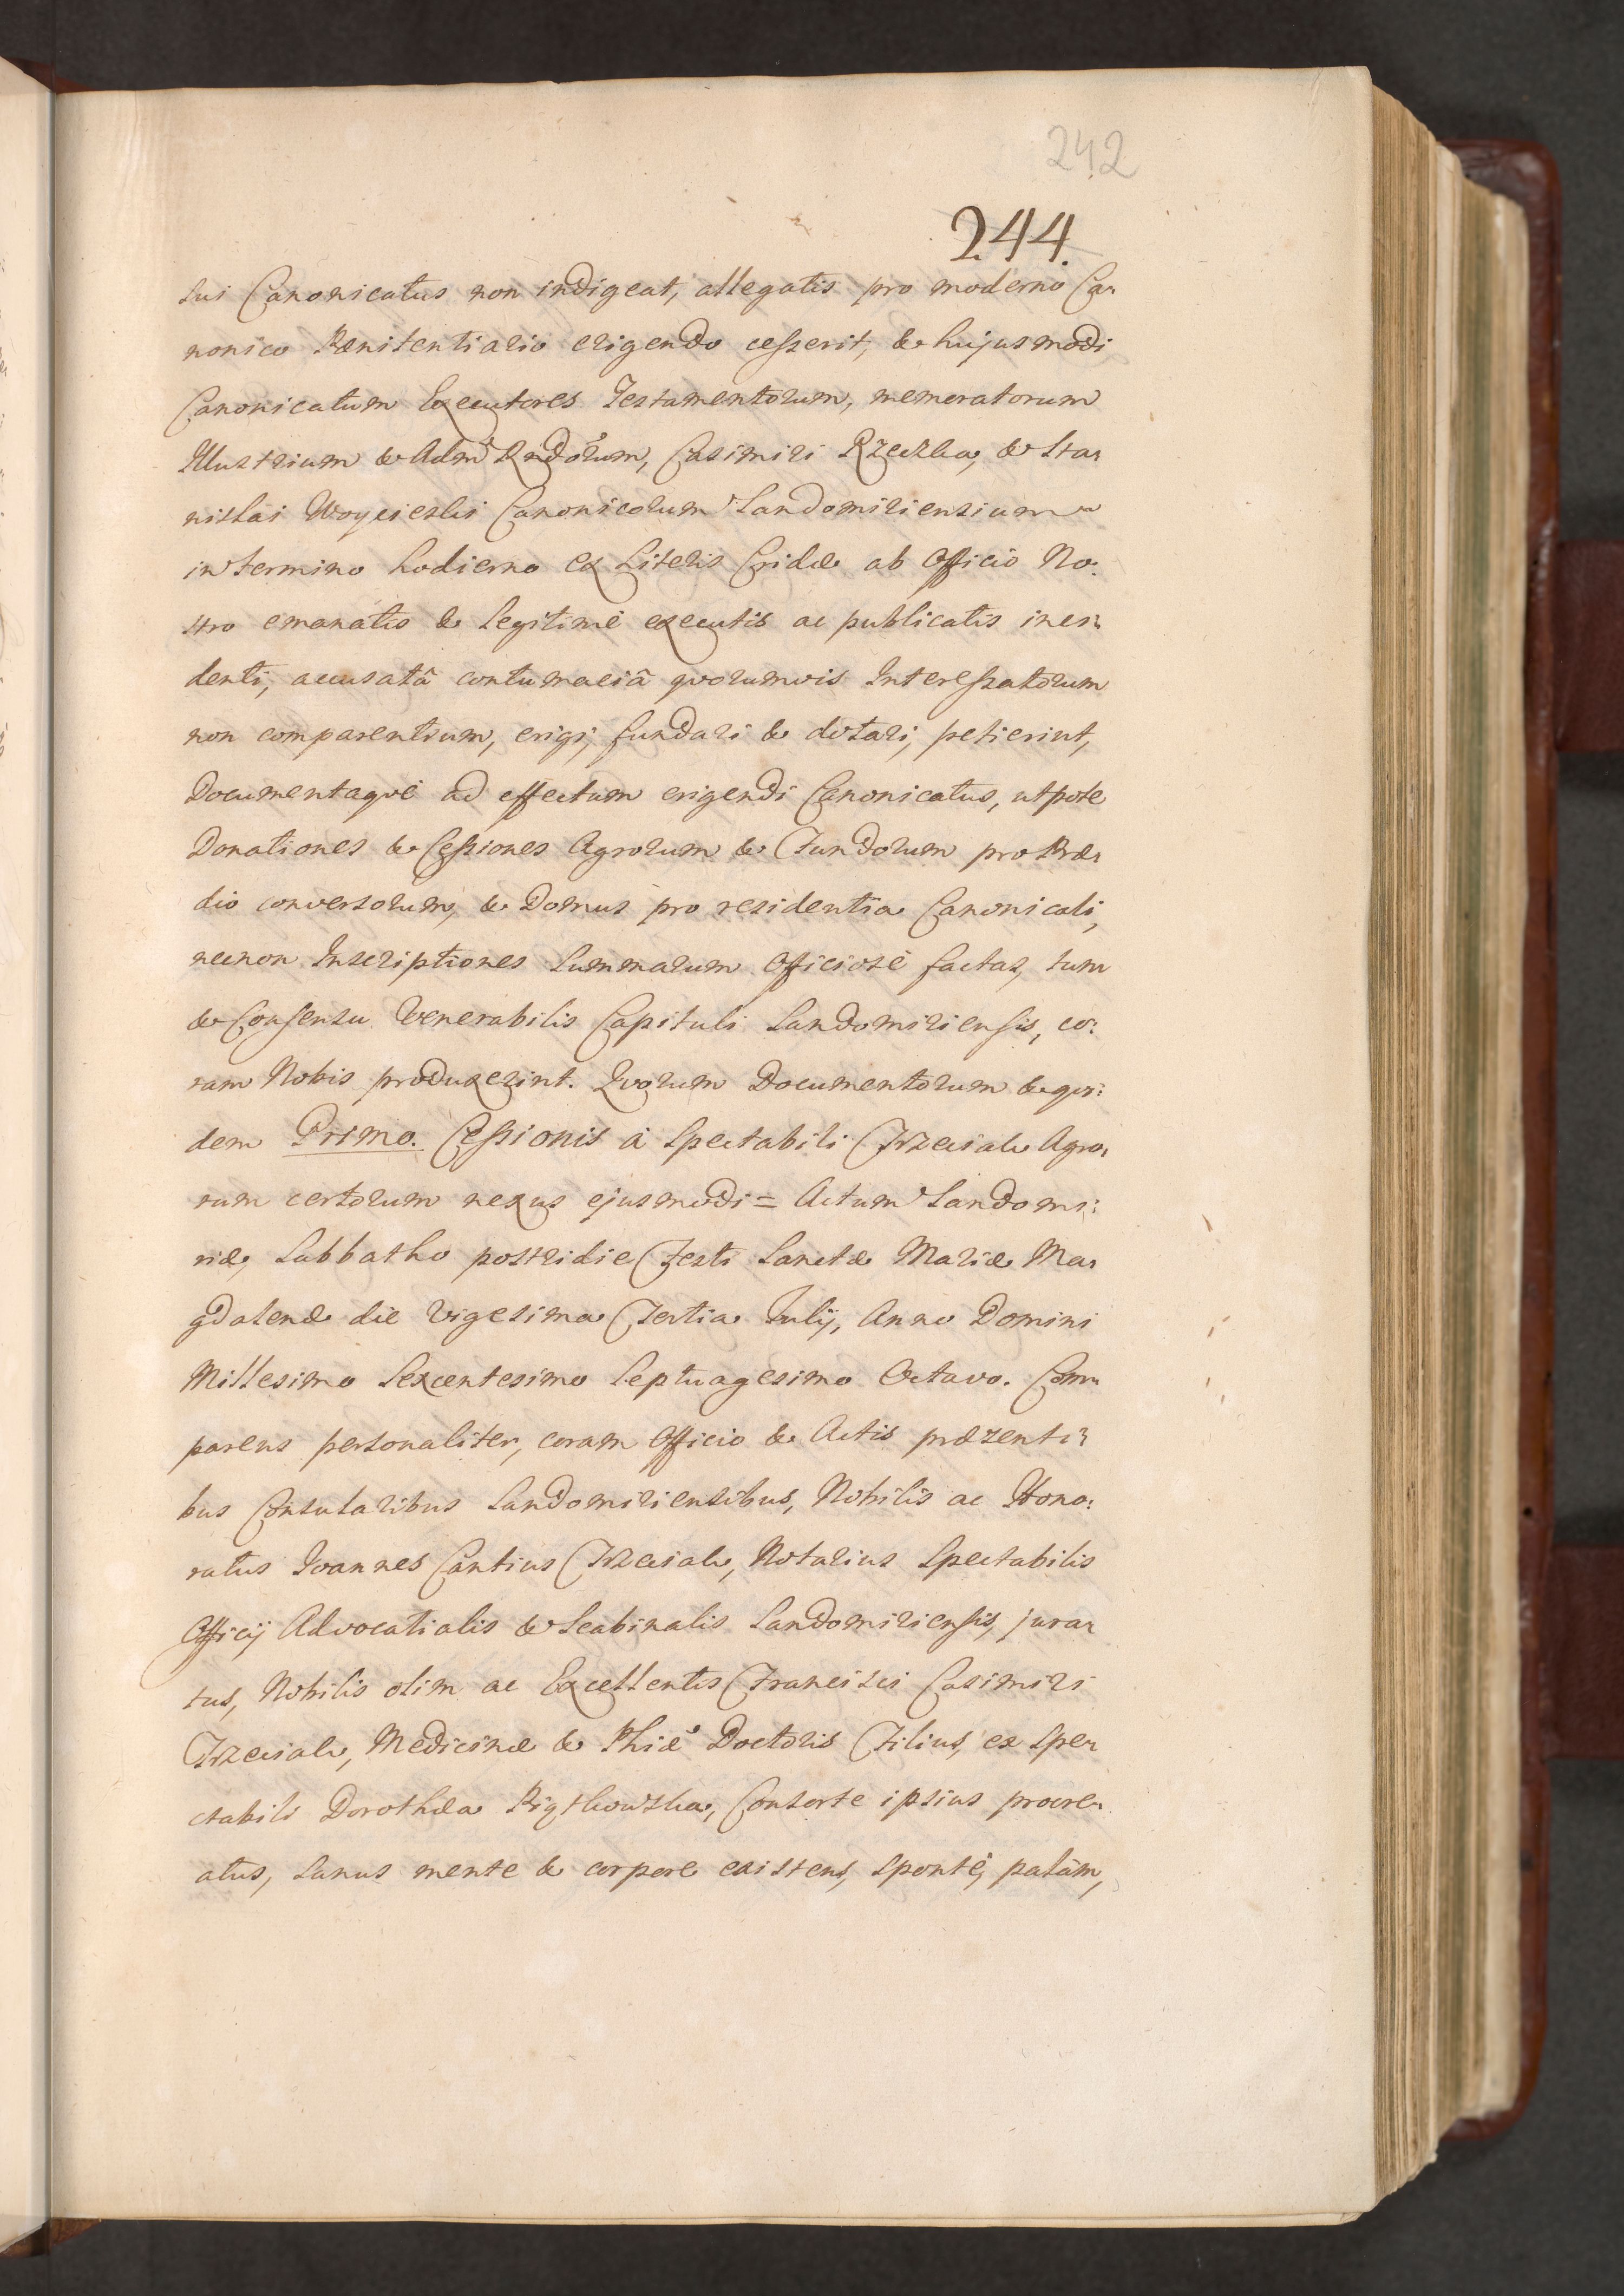 242
244.
sui Canonicatus non indigeat, allegatis pro moderno Ca:
nonico Pœnitentiario erigendo cesserit, & hujusmodi
Canonicatum Executores Testamentorum, memoratorum
Illustrium & Adm Rndorum, Casimiri Rzeczka, & Sta:
nislai Woycieski Canonicorum Sandomiriensium
in termino hodierno ex Literis Cridæ ab Officio No:
stro emanatis & legitimè executis ac publicatis inci:
denti, accusatâ contumaciâ quorumvis Interessatorum
non comparentium, erigi, fundari & dotari, petierint,
Documentaquè ad effectum erigendi Canonicatus, utpote
Donationes & Cessiones Agrorum & Fundorum pro Præ:
dio conversorum, & Domus pro residentia Canonicali,
necnon Inscriptiones Summarum Officiosè factas, tum
& Consensu Venerabilis Capituli Sandomiriensis, co:
ram Nobis produxerint. Quorum Documentorum & qui:
dem Primo. Cessionis à Spectabili Trzeciak Agro:
rum certorum nexus ejusmodi = Actum Sandomi:
riæ, Sabbatho postridie Festi Sanctæ Mariæ Ma:
gdalenæ die Vigesima Tertia Julij, Anno Domini
Millesimo Sexcentesimo Septuagesimo Octavo. Com:
parens personaliter, coram Officio & Actis præsenti:
bus Consularibus Sandomiriensibus, Nobilis ac Hono:
ratus Joannes Cantius Trzeciak, Notarius Spectabilis
Officij Advocatialis & Scabinalis Sandomiriensis, jura:
tus, Nobilis olim ac Excellentis Francisci Casimiri
Trzeciak, Medicinæ & Phiæ Doctoris Filius, ex Spe:
ctabili Dorothea Consorte ipsius procre:
atus, sanus mente & corpore existens, spontè, palàm,